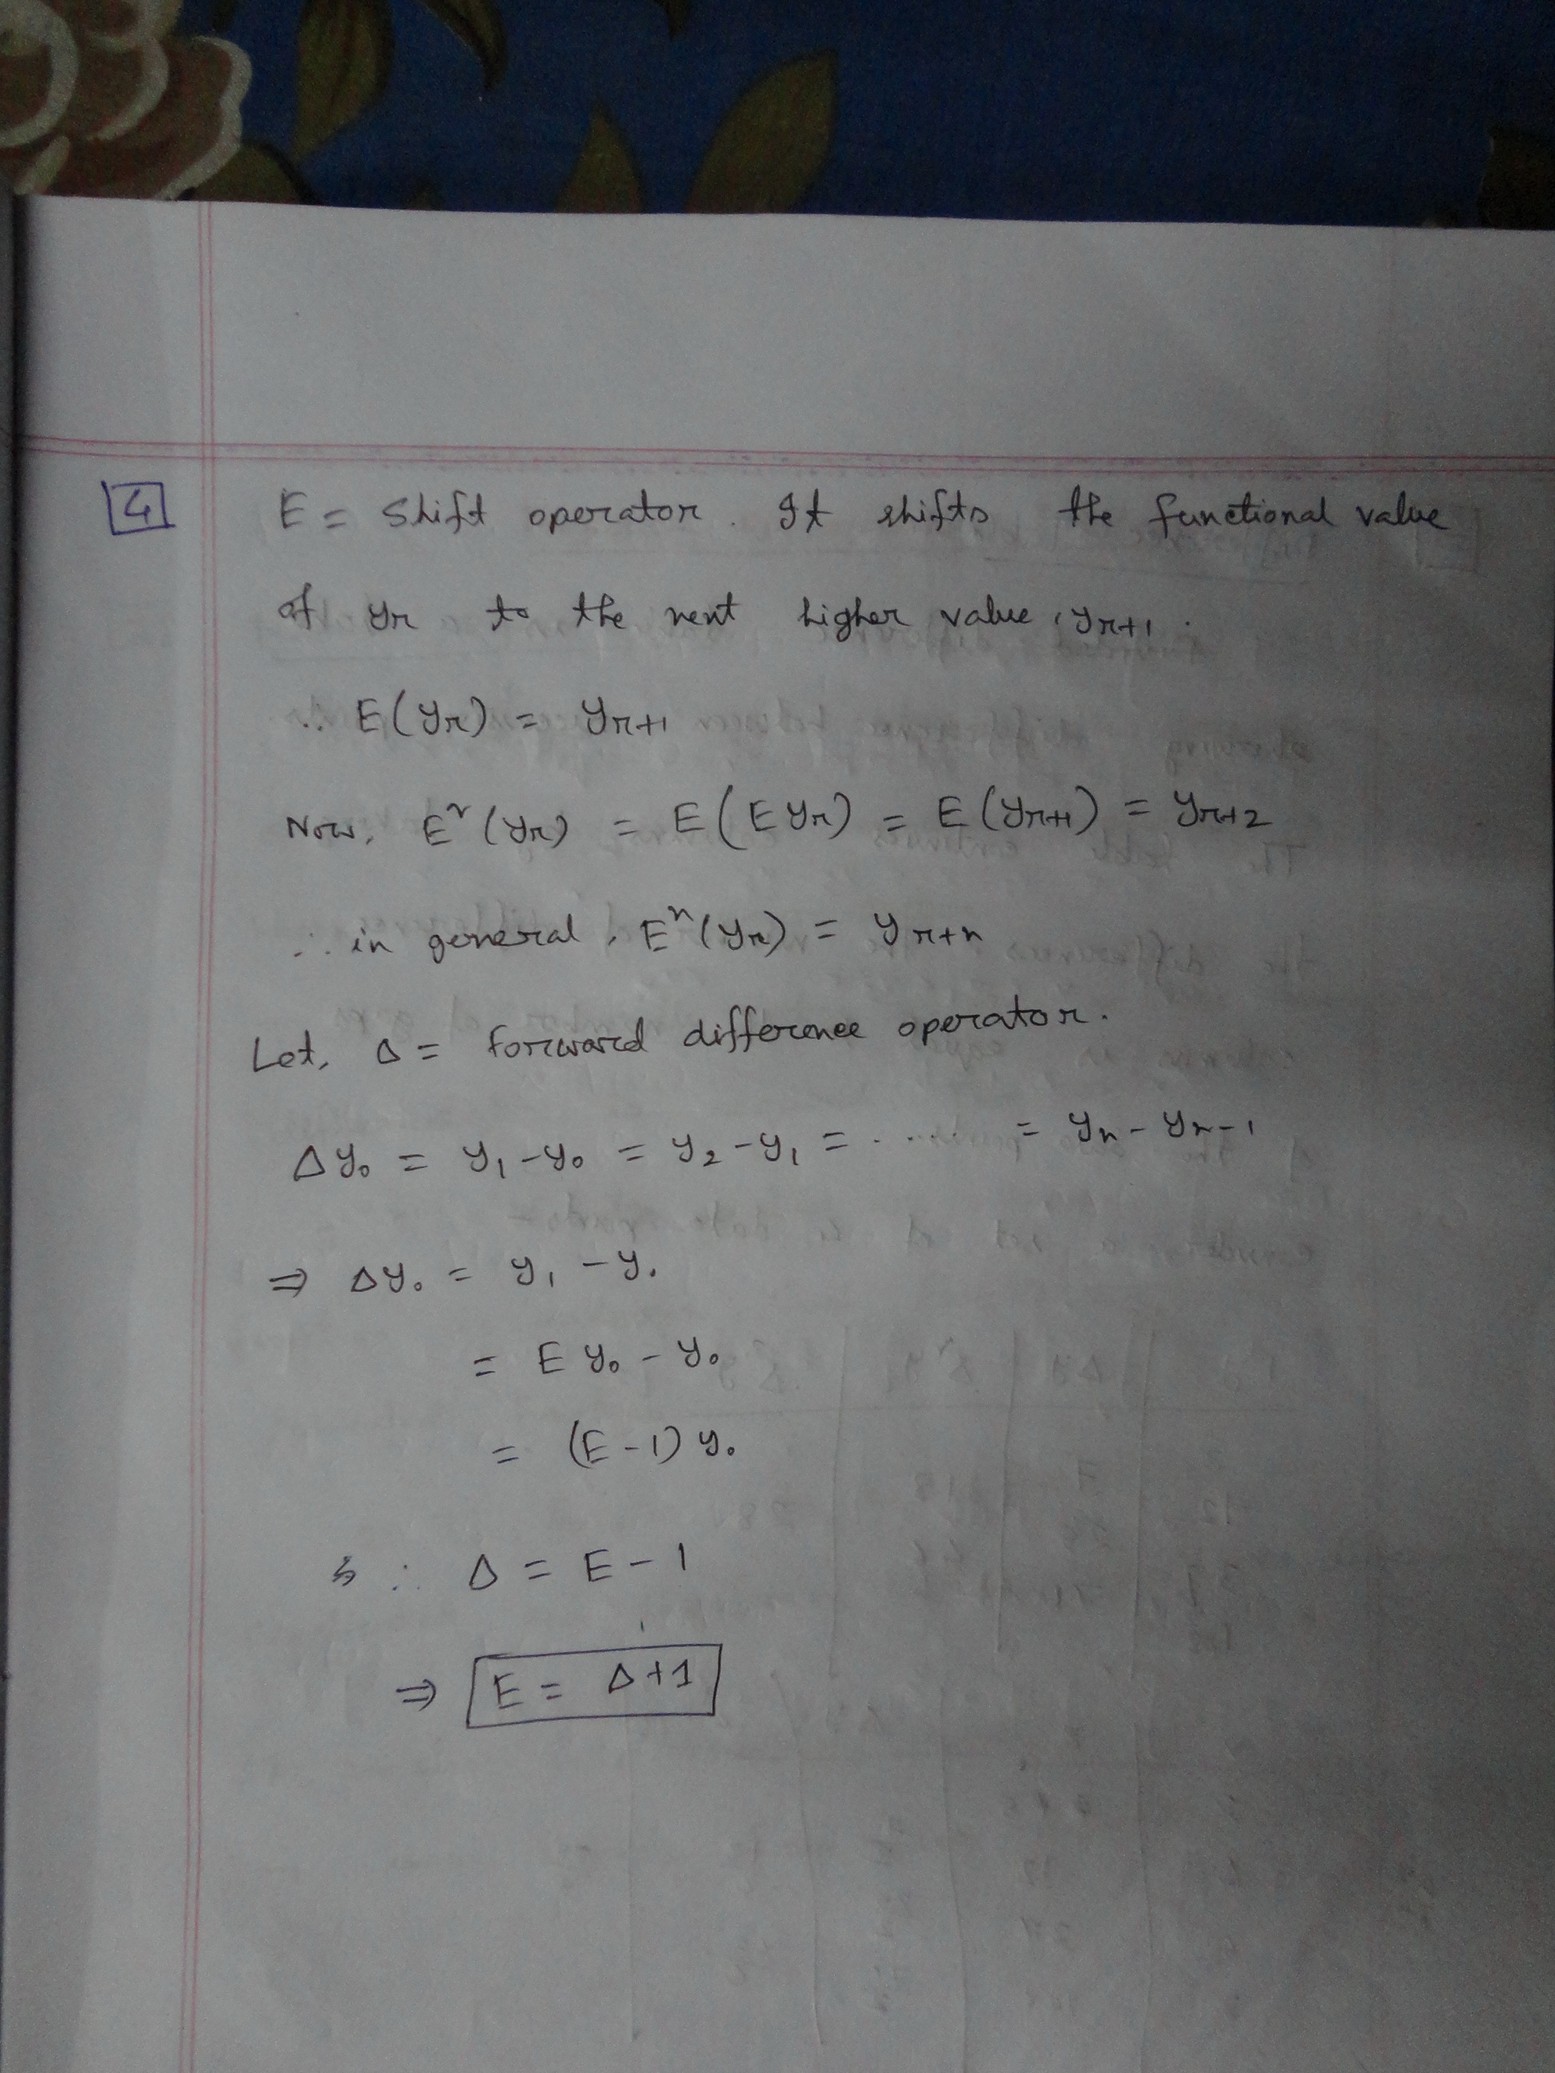 4 E = Shift operator. It shifts the functional value
of yr to the next higher value, yr+1.
∴ E(yr) = yr+1
Now, E²(yr) = E(E yr) = E(yr+1) = yr+2
∴ in general, Eⁿ(yr) = yr+n
Let, Δ = forward difference operator.
Δy₀ = y₁ - y₀ = y₂ - y₁ = ....... = yn - yn-1
⇒ Δy₀ = y₁ - y₀
= E y₀ - y₀
= (E-1) y₀
∴ Δ = E - 1
⇒ E = Δ+1